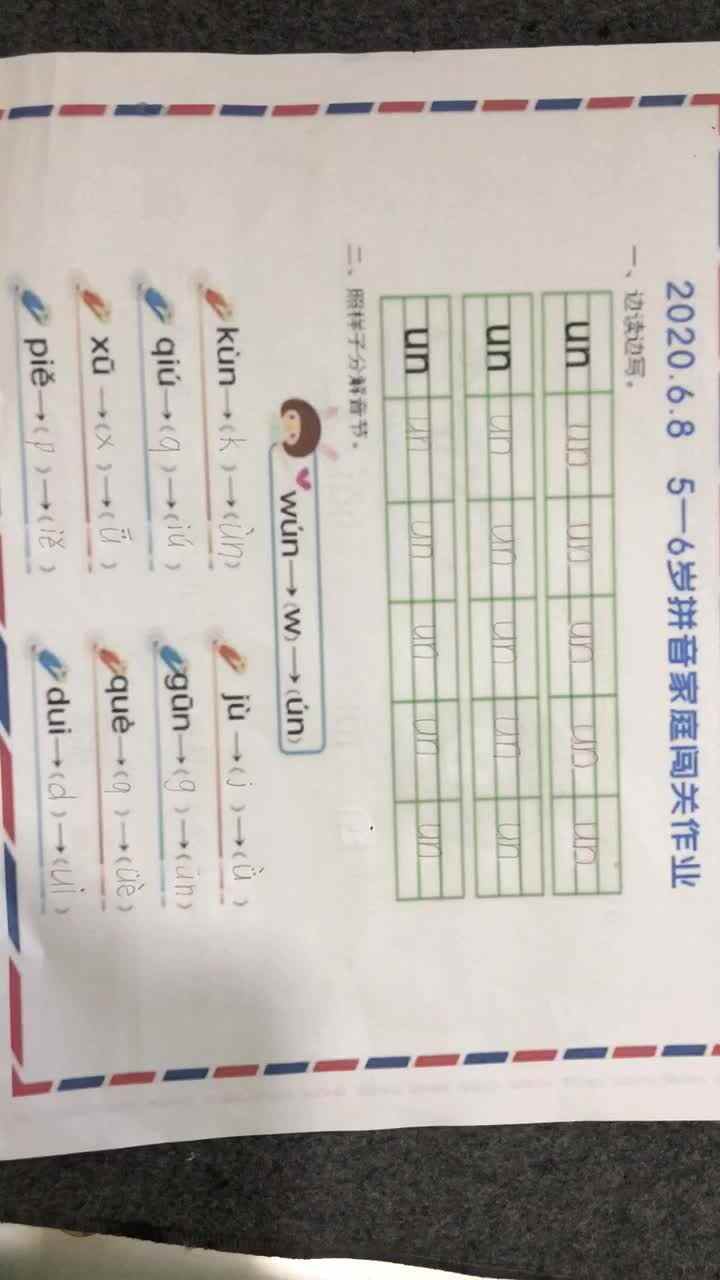 2020.6.8 5—6岁拼音家庭闯关作业
一、边读边写。
un un un un un un
un un un un un un
un un un un un un
二、照样子分解音节。
wún→(w)→(ún)
kùn→(k)→(ùn) jù→(j)→(ǜ)
qiú→(q)→(iú) gūn→(g)→(ūn)
xū→(x)→(ǖ) què→(q)→(üè)
piě→(p)→(iě) dui→(d)→(ui)